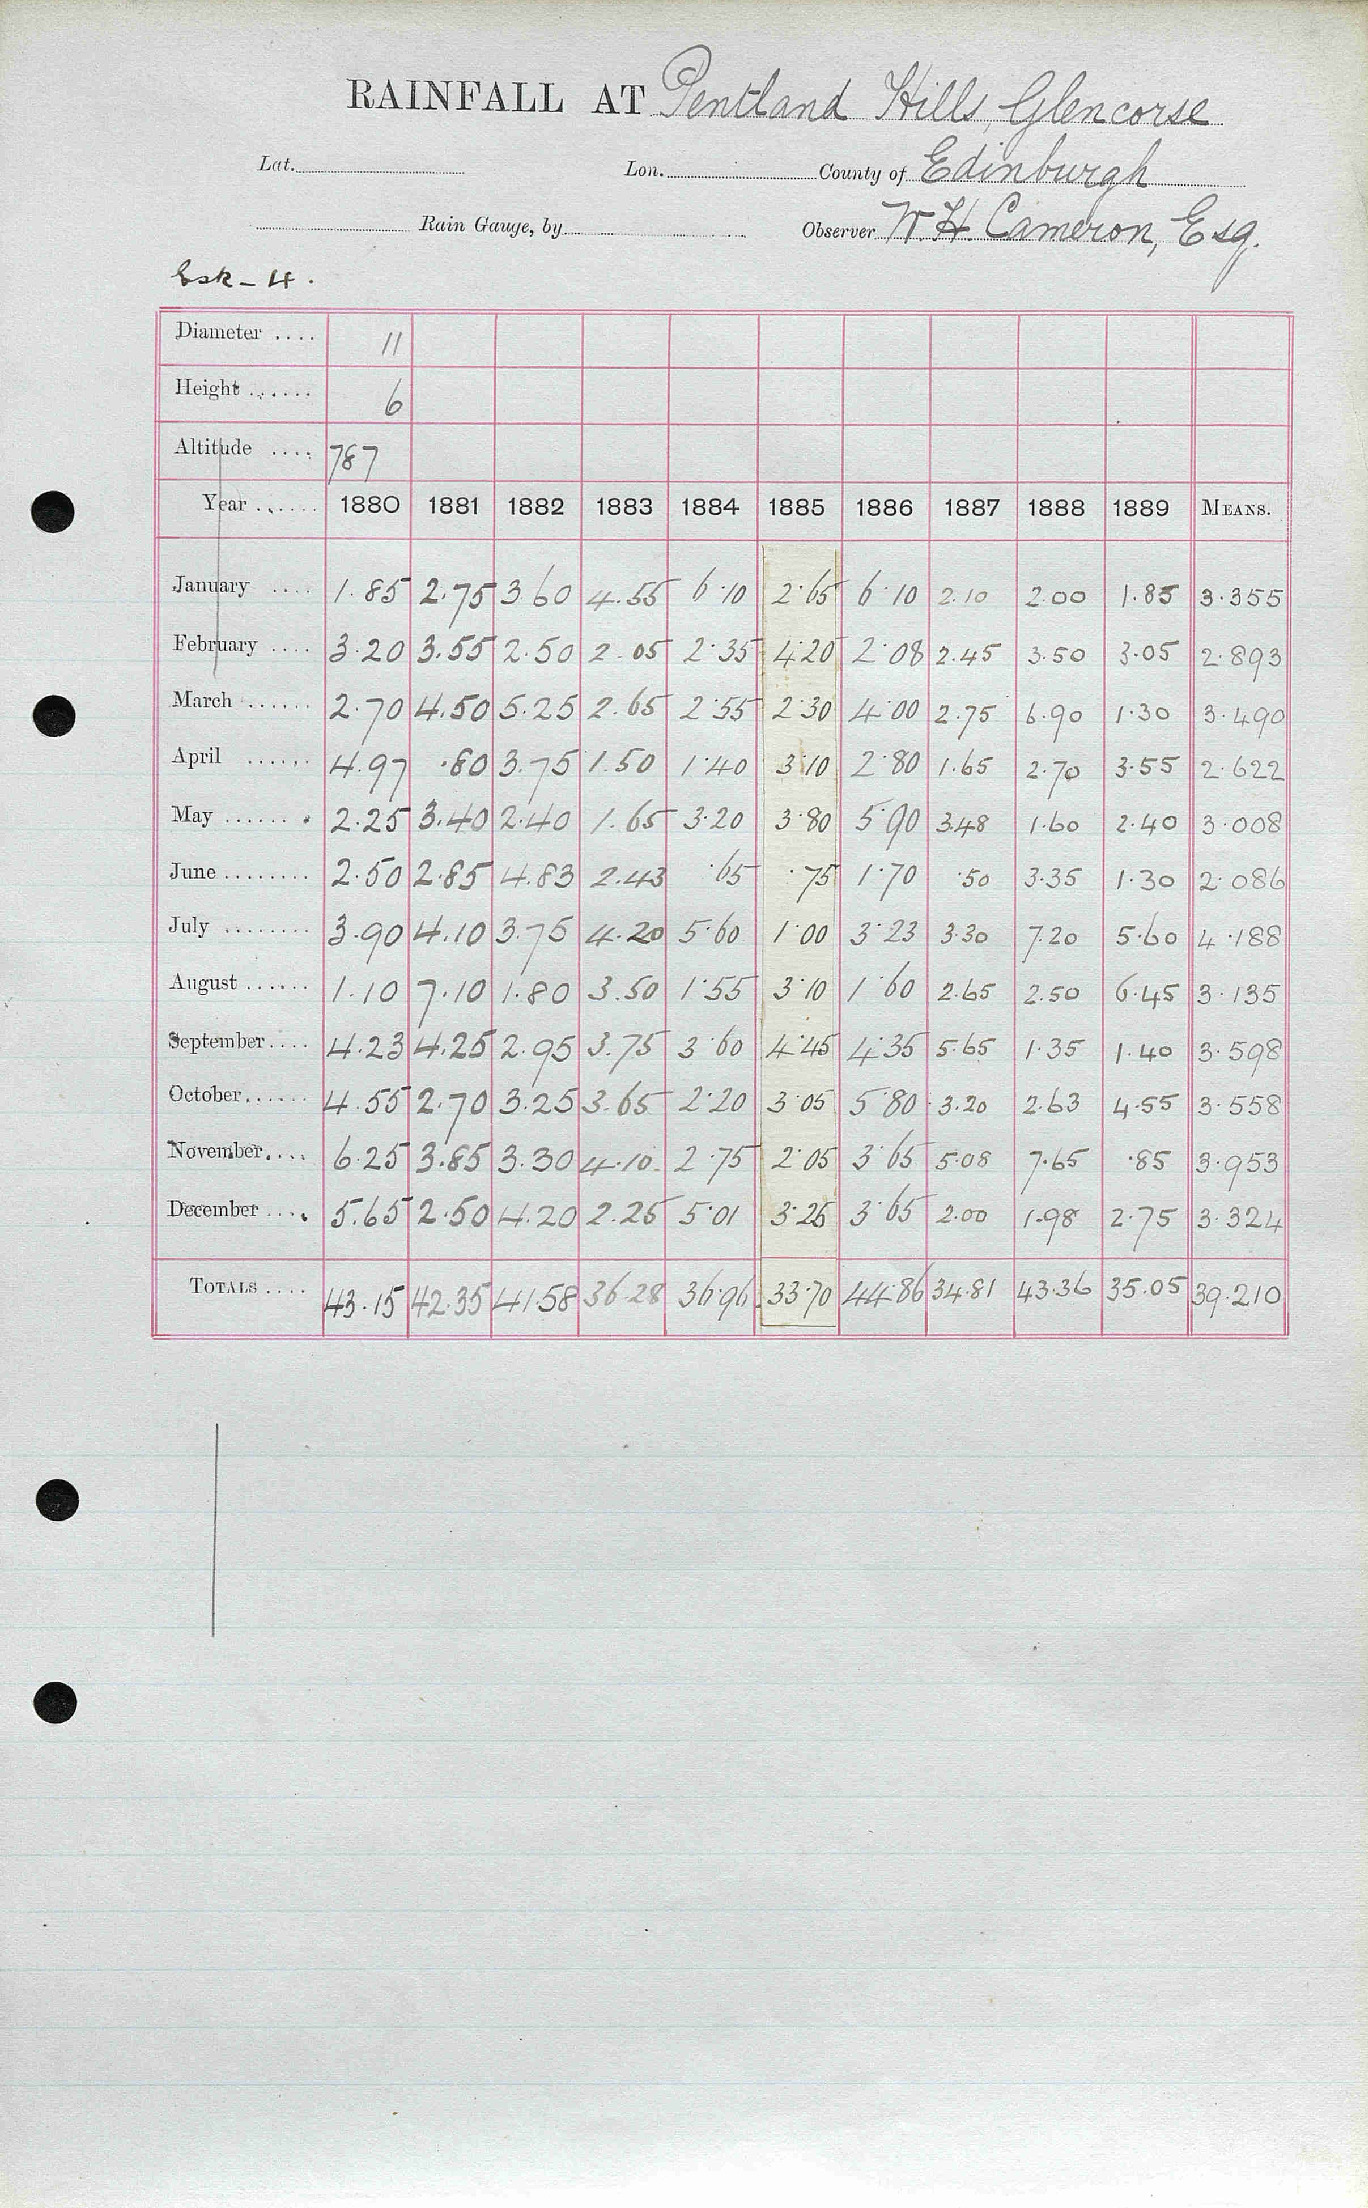 RAINFALL AT Pentland Hills, Glencorse
Lat. Lon. County of Edinburgh
Rain Gauge, by Observer W. H. Cameron, Esq.
Esk - 4.
Diameter .... 11
Height ...... 6
Altitude .... 787
Year ...... 1880 1881 1882 1883 1884 1885 1886 1887 1888 1889 MEANS.
January .... 1.85 2.75 3 60 4.55 6.10 2.65 6.10 2.10 2.00 1.85 3.355
February .... 3.20 3.55 2.50 2.05 2.35 4.20 2.08 2.45 3.50 3.05 2.893
March ...... 2.70 4.50 5.25 2.65 2.55 2.30 4.00 2.75 6.90 1.30 3.490
April ...... 4.97 .80 3.75 1.50 1.40 3.10 2.80 1.65 2.70 3.55 2.622
May ....... 2.25 3.40 2.40 1.65 3.20 3.80 5.90 3.48 1.60 2.40 3.008
June ........ 2.50 2.85 4.83 2.43 .65 .75 1.70 .50 3.35 1.30 2.086
July ........ 3.90 4.10 3.75 4.20 5.60 1.00 3.23 3.30 7.20 5.60 4.188
August ...... 1.10 7.10 1.80 3.50 1.55 3.10 1.60 2.65 2.50 6.45 3.135
September.... 4.23 4.25 2.95 3.75 3.60 4.45 4.35 5.65 1.35 1.40 3.598
October...... 4.55 2.70 3.25 3.65 2.20 3.05 5.80 3.20 2.63 4.55 3.558
November.... 6.25 3.85 3.30 4.10 2.75 2.05 3.65 5.08 7.65 .85 3.953
December .... 5.65 2.50 4.20 2.25 5.01 3.25 3.65 2.00 1.98 2.75 3.324
TOTALS .... 43.15 42.35 41.58 36.28 36.96 33.70 44.86 34.81 43.36 35.05 39.210